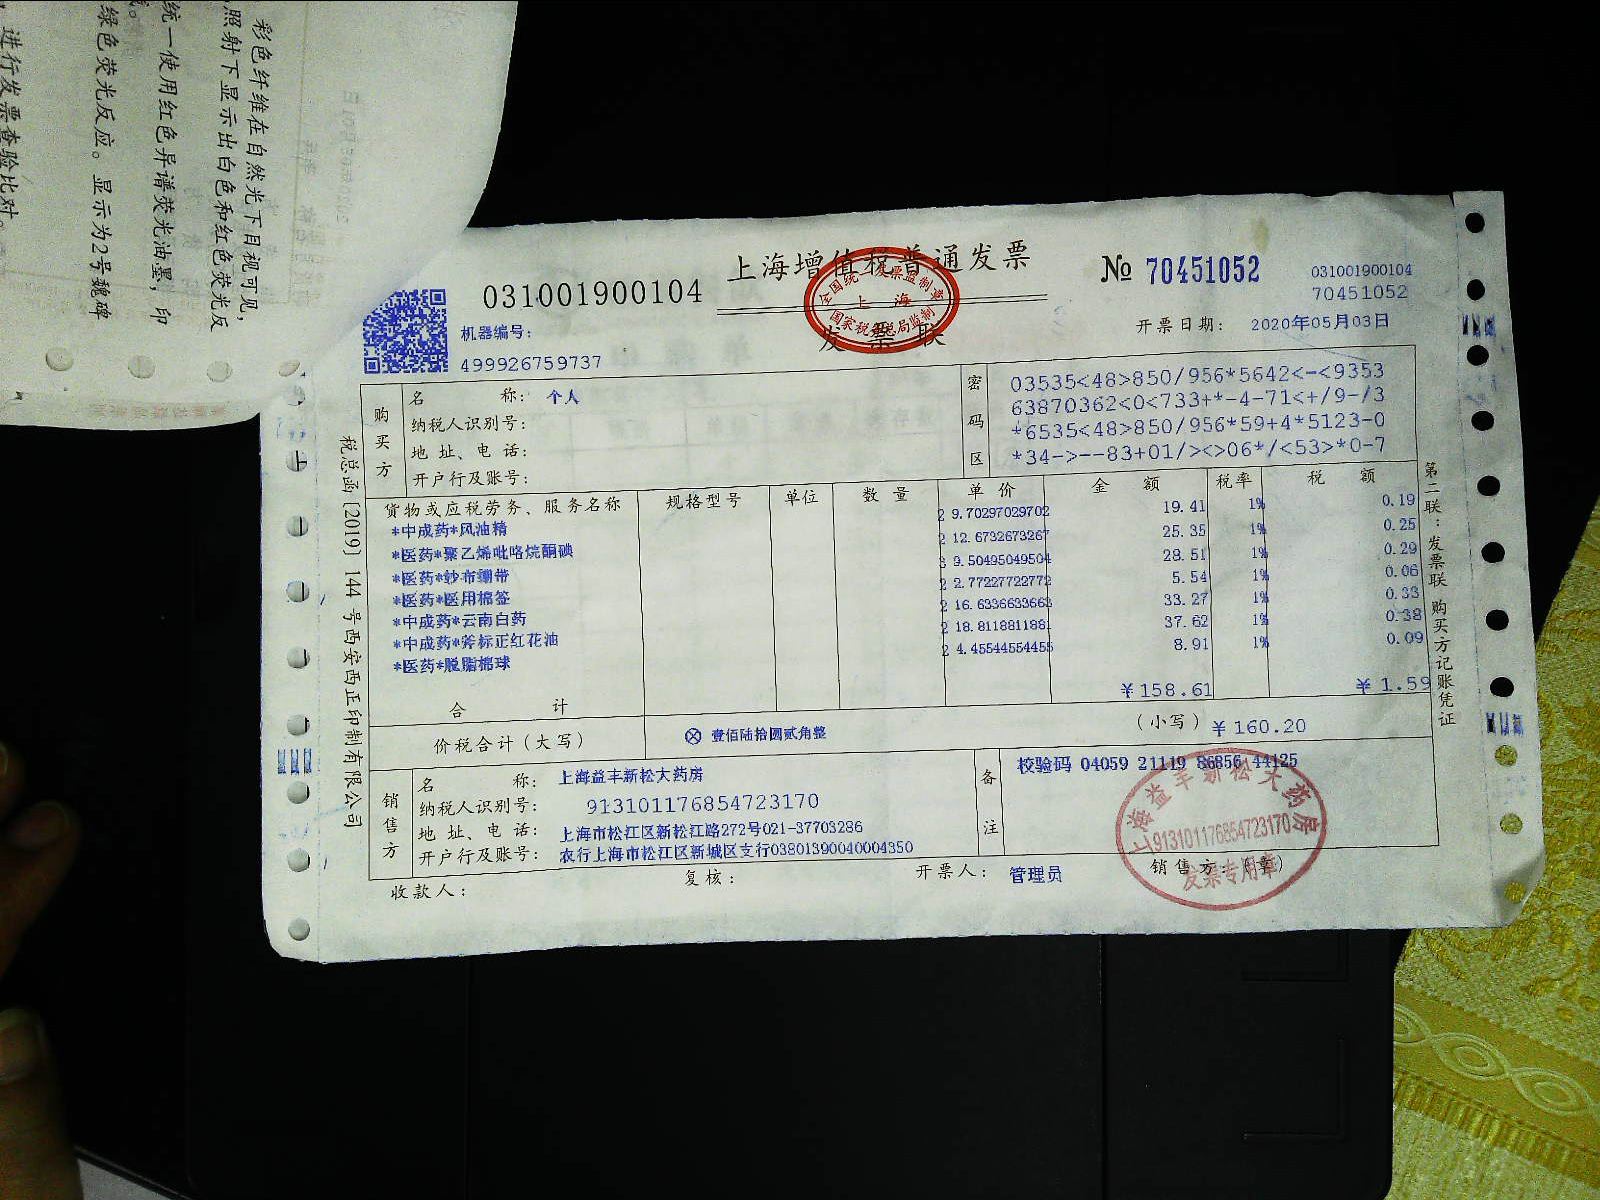 彩色纤维在自然光下目视可见,
照射下显示出白色和红色荧光反
统一使用红色异谱荧光油墨,印
绿色荧光反应。显示为2号魏碑
进行发票查验比对。
上海增值税普通发票
发票联
全国统一发票监制章
上海
国家税务总局监制
031001900104
№ 70451052
031001900104
70451052
机器编号:
499926759737
开票日期: 2020年05月03日
购买方
名 称: 个人
纳税人识别号:
地 址、电 话:
开户行及账号:
密码区
03535<48>850/956*5642<-<9353
63870362<0<733+*-4-71<+/9-/3
*6535<48>850/956*59+4*5123-0
*34->--83+01/><>06*/<53>*0-7
货物或应税劳务、服务名称 规格型号 单位 数 量 单 价 金 额 税率 税 额
*中成药*风油精 2 9.70297029702 19.41 1% 0.19
*医药*聚乙烯吡咯烷酮碘 2 12.6732673267 25.35 1% 0.25
*医药*纱布绷带 3 9.50495049504 28.51 1% 0.29
*医药*医用棉签 2 2.77227722772 5.54 1% 0.06
*中成药*云南白药 2 16.6336633663 33.27 1% 0.33
*中成药*斧标正红花油 2 18.8118811881 37.62 1% 0.38
*医药*脱脂棉球 2 4.45544554455 8.91 1% 0.09
合 计 ¥158.61 ¥1.59
价税合计(大写) ⊗ 壹佰陆拾圆贰角整 (小写) ¥160.20
销售方
名 称: 上海益丰新松大药房
纳税人识别号: 913101176854723170
地 址、电 话: 上海市松江区新松江路272号021-37703286
开户行及账号: 农行上海市松江区新城区支行03801390040004350
备注
校验码 04059 21119 86856 44125
收款人: 复核: 开票人: 管理员 销售方:(章)
上海益丰新松大药房
913101176854723170
发票专用章
税总函[2019]144号西安西正印制有限公司
第二联:发票联 购买方记账凭证